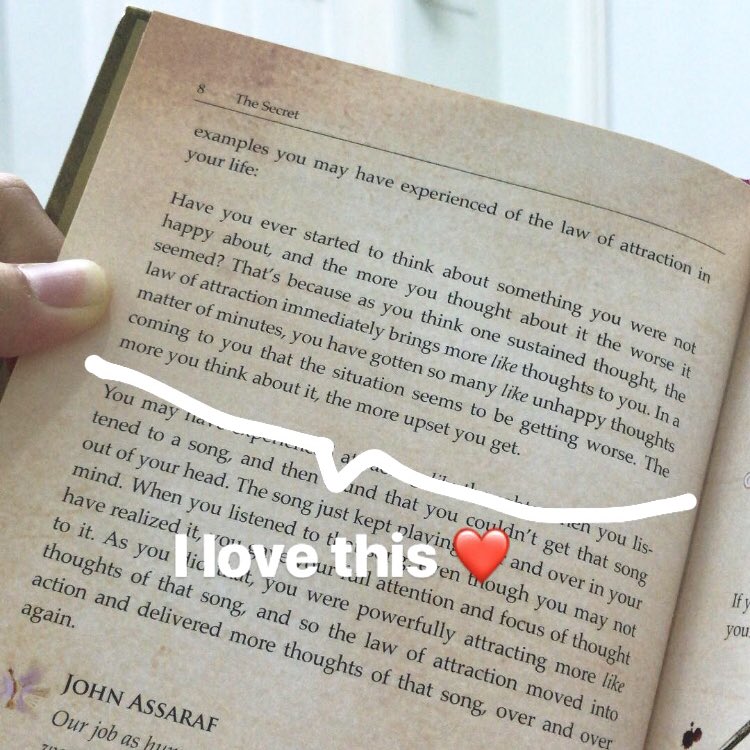 8 The Secret
examples you may have experienced of the law of attraction in
your life:
Have you ever started to think about something you were not
happy about, and the more you thought about it the worse it
seemed? That's because as you think one sustained thought, the
law of attraction immediately brings more like thoughts to you. In a
matter of minutes, you have gotten so many like unhappy thoughts
coming to you that the situation seems to be getting worse. The
more you think about it, the more upset you get.
You may have like when you lis-
tened to a song, and then found that you couldn't get that song
out of your head. The song just kept playing and over in your
mind. When you listened to even though you may not
have realized it, your full attention and focus of thought
to it. As you did that, you were powerfully attracting more like
thoughts of that song, and so the law of attraction moved into
action and delivered more thoughts of that song, over and over
again.
I love this ❤️
JOHN ASSARAF
Our job as
If y
you